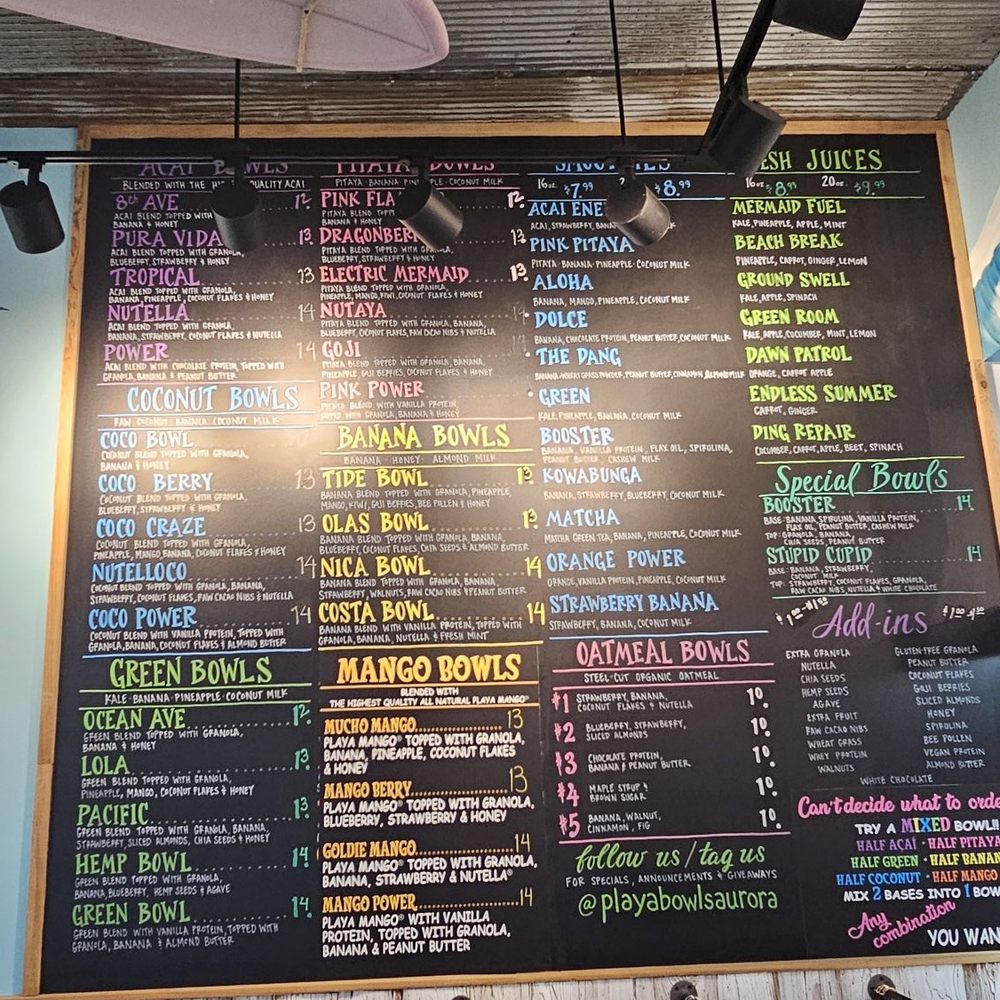 ACAI BOWLS
BLENDED WITH THE QUALITY ACAI
8th AVE 12.
ACAI BLEND TOPPED WITH
BANANA & HONEY
PURA VIDA 13
ACAI BLEND TOPPED WITH GRANOLA,
BLUEBERRY, STRAWBERRY & HONEY
TROPICAL 13
ACAI BLEND TOPPED WITH GRANOLA,
BANANA, PINEAPPLE, COCONUT FLAKES & HONEY
NUTELLA 14
ACAI BLEND TOPPED WITH GRANOLA,
BANANA, STRAWBERRY, COCONUT FLAKES & NUTELLA
POWER 14
ACAI BLEND WITH CHOCOLATE PROTEIN, TOPPED WITH
GRANOLA, BANANA & PEANUT BUTTER
COCONUT BOWLS
RAW COCONUT · BANANA · COCONUT MILK
COCO BOWL
COCONUT BLEND TOPPED WITH GRANOLA,
BANANA & HONEY
COCO BERRY 13
COCONUT BLEND TOPPED WITH GRANOLA,
BLUEBERRY, STRAWBERRY & HONEY
COCO CRAZE 13
COCONUT BLEND TOPPED WITH GRANOLA,
PINEAPPLE, MANGO, BANANA, COCONUT FLAKES & HONEY
NUTELLOCO 14
COCONUT BLEND TOPPED WITH GRANOLA, BANANA,
STRAWBERRY, COCONUT FLAKES, RAW CACAO NIBS & NUTELLA
COCO POWER 14
COCONUT BLEND WITH VANILLA PROTEIN, TOPPED WITH
GRANOLA, BANANA, COCONUT FLAKES & ALMOND BUTTER
GREEN BOWLS
KALE · BANANA · PINEAPPLE · COCONUT MILK
OCEAN AVE 12.
GREEN BLEND TOPPED WITH GRANOLA,
BANANA & HONEY
LOLA 13.
GREEN BLEND TOPPED WITH GRANOLA,
PINEAPPLE, MANGO, COCONUT FLAKES & HONEY
PACIFIC 13.
GREEN BLEND TOPPED WITH GRANOLA, BANANA,
STRAWBERRY, SLICED ALMONDS, CHIA SEEDS & HONEY
HEMP BOWL 14.
GREEN BLEND TOPPED WITH GRANOLA,
BANANA, BLUEBERRY, HEMP SEEDS & AGAVE
GREEN BOWL 14.
GREEN BLEND WITH VANILLA PROTEIN, TOPPED WITH
GRANOLA, BANANA & ALMOND BUTTER
PITAYA BOWLS
PITAYA · BANANA · PINEAPPLE · COCONUT MILK
PINK FLA 12.
PITAYA BLEND TOPPED
BANANA & HONEY
DRAGONBERRY 13
PITAYA BLEND TOPPED WITH GRANOLA,
BLUEBERRY, STRAWBERRY & HONEY
ELECTRIC MERMAID 13.
PITAYA BLEND TOPPED WITH GRANOLA,
PINEAPPLE, MANGO, KIWI, COCONUT FLAKES & HONEY
NUTAYA 14
PITAYA BLEND TOPPED WITH GRANOLA, BANANA,
BLUEBERRY, COCONUT FLAKES, RAW CACAO NIBS & NUTELLA
GOJI
PITAYA BLEND TOPPED WITH GRANOLA, BANANA,
PINEAPPLE, GOJI BERRIES, COCONUT FLAKES & HONEY
PINK POWER
PITAYA BLEND WITH VANILLA PROTEIN,
TOPPED WITH GRANOLA, BANANA & HONEY
BANANA BOWLS
BANANA · HONEY · ALMOND MILK
TIDE BOWL 13.
BANANA BLEND TOPPED WITH GRANOLA, PINEAPPLE,
MANGO, KIWI, GOJI BERRIES, BEE POLLEN & HONEY
OLAS BOWL 13.
BANANA BLEND TOPPED WITH GRANOLA, BANANA,
BLUEBERRY, COCONUT FLAKES, CHIA SEEDS & ALMOND BUTTER
NICA BOWL 14
BANANA BLEND TOPPED WITH GRANOLA, BANANA,
STRAWBERRY, WALNUTS, RAW CACAO NIBS & PEANUT BUTTER
COSTA BOWL 14
BANANA BLEND WITH VANILLA PROTEIN, TOPPED WITH
GRANOLA, BANANA, NUTELLA & FRESH MINT
MANGO BOWLS
BLENDED WITH
THE HIGHEST QUALITY ALL NATURAL PLAYA MANGO®
MUCHO MANGO 13
PLAYA MANGO® TOPPED WITH GRANOLA,
BANANA, PINEAPPLE, COCONUT FLAKES
& HONEY
MANGO BERRY 13
PLAYA MANGO® TOPPED WITH GRANOLA,
BLUEBERRY, STRAWBERRY & HONEY
GOLDIE MANGO 14
PLAYA MANGO® TOPPED WITH GRANOLA,
BANANA, STRAWBERRY & NUTELLA®
MANGO POWER 14
PLAYA MANGO® WITH VANILLA
PROTEIN, TOPPED WITH GRANOLA,
BANANA & PEANUT BUTTER
SMOOTHIES
16oz. $7.99 $8.99
ACAI ENE
ACAI, STRAWBERRY, BANANA MILK
PINK PITAYA
PITAYA · BANANA · PINEAPPLE · COCONUT MILK
ALOHA
BANANA, MANGO, PINEAPPLE, COCONUT MILK
DOLCE
BANANA, CHOCOLATE PROTEIN, PEANUT BUTTER, COCONUT MILK
THE DANG
BANANA, WHEAT GRASS POWDER, PEANUT BUTTER, CINNAMON, ALMOND MILK
GREEN
KALE, PINEAPPLE, BANANA, COCONUT MILK
BOOSTER
BANANA, VANILLA PROTEIN, FLAX OIL, SPIRULINA,
PEANUT BUTTER, CASHEW MILK
KOWABUNGA
BANANA, STRAWBERRY, BLUEBERRY, COCONUT MILK
MATCHA
MATCHA GREEN TEA, BANANA, PINEAPPLE, COCONUT MILK
ORANGE POWER
ORANGE, VANILLA PROTEIN, PINEAPPLE, COCONUT MILK
STRAWBERRY BANANA
STRAWBERRY, BANANA, COCONUT MILK
OATMEAL BOWLS
STEEL-CUT ORGANIC OATMEAL
#1 STRAWBERRY, BANANA, 10.
COCONUT FLAKES & NUTELLA
#2 BLUEBERRY, STRAWBERRY, 10.
SLICED ALMONDS
#3 CHOCOLATE PROTEIN, 10.
BANANA & PEANUT BUTTER
#4 MAPLE SYRUP & 10.
BROWN SUGAR
#5 BANANA, WALNUT, 10.
CINNAMON, FIG
follow us / tag us
FOR SPECIALS, ANNOUNCEMENTS & GIVEAWAYS
@playabowlsaurora
FRESH JUICES
16oz. $8.99 20oz. $9.99
MERMAID FUEL
KALE, PINEAPPLE, APPLE, MINT
BEACH BREAK
PINEAPPLE, CARROT, GINGER, LEMON
GROUND SWELL
KALE, APPLE, SPINACH
GREEN ROOM
KALE, APPLE, CUCUMBER, MINT, LEMON
DAWN PATROL
ORANGE, CARROT, APPLE
ENDLESS SUMMER
CARROT, GINGER
DING REPAIR
CUCUMBER, CARROT, APPLE, BEET, SPINACH
Special Bowls
BOOSTER 14
BASE: BANANA, SPIRULINA, VANILLA PROTEIN,
FLAX OIL, PEANUT BUTTER, CASHEW MILK
TOP: GRANOLA, BANANA,
CHIA SEEDS, PEANUT BUTTER
STUPID CUPID 14
BASE: BANANA, STRAWBERRY,
COCONUT MILK
TOP: STRAWBERRY, COCONUT FLAKES, GRANOLA,
RAW CACAO NIBS, NUTELLA & WHITE CHOCOLATE
Add-ins
EXTRA GRANOLA GLUTEN-FREE GRANOLA
NUTELLA PEANUT BUTTER
CHIA SEEDS COCONUT FLAKES
HEMP SEEDS GOJI BERRIES
AGAVE SLICED ALMONDS
EXTRA FRUIT HONEY
RAW CACAO NIBS SPIRULINA
WHEAT GRASS BEE POLLEN
WHEY PROTEIN VEGAN PROTEIN
WALNUTS ALMOND BUTTER
WHITE CHOCOLATE
Can't decide what to orde
TRY A MIXED BOWL!!
HALF ACAI · HALF PITAYA
HALF GREEN · HALF BANAN
HALF COCONUT · HALF MANGO
MIX 2 BASES INTO 1 BOW
Any combination
YOU WAN